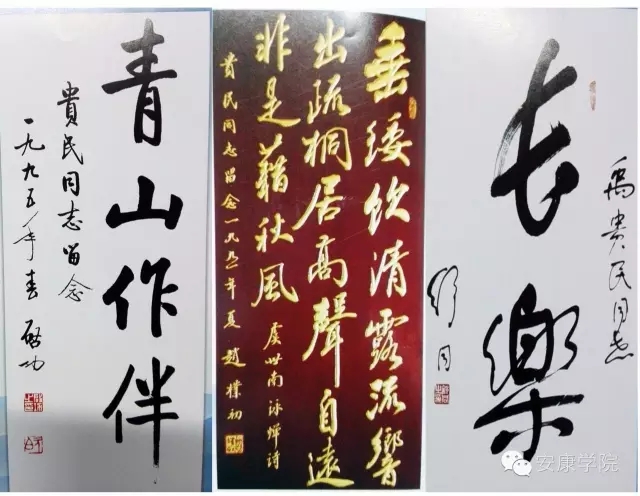 青山作伴
貴民同志留念
一九九五年春 啟功
垂緌飲清露流響
出疏桐居高聲自遠
非是藉秋風
虞世南詠蟬詩
貴民同志留念一九九一年夏 趙樸初
禹贵民同志
长樂
舒同
安康学院